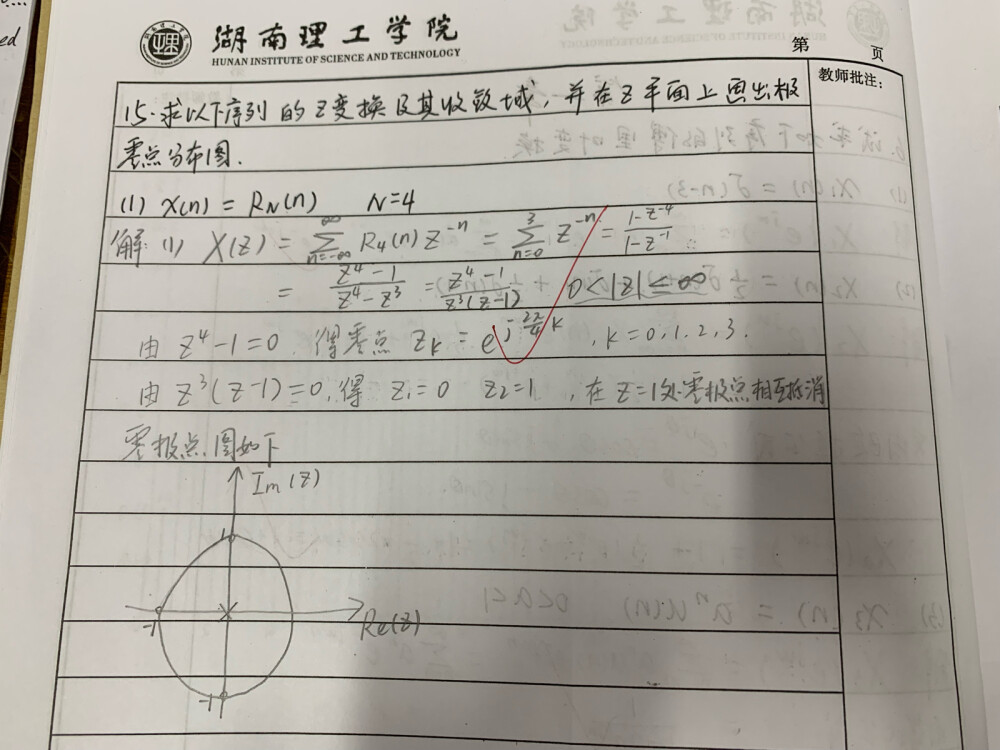 ed
湖南理工学院
HUNAN INSTITUTE OF SCIENCE AND TECHNOLOGY
第 页
教师批注:
15.求以下序列的Z变换及其收敛域,并在Z平面上画出极
零点分布图.
(1) X(n) = R_N(n) N=4
解:(1) X(Z) = \sum_{n=-∞}^{∞} R_4(n) Z^{-n} = \sum_{n=0}^{3} Z^{-n} = \frac{1-Z^{-4}}{1-Z^{-1}}
= \frac{Z^4-1}{Z^4-Z^3} = \frac{Z^4-1}{Z^3(Z-1)} 0<|Z|≤∞
由 Z^4-1=0, 得零点 Z_K = e^{j\frac{2π}{4}K}, K=0,1,2,3.
由 Z^3(Z-1)=0,得 Z_1=0 Z_2=1 ,在Z=1处零极点相互抵消
零极点图如下
Im(Z)
1
-1
Re(Z)
-1